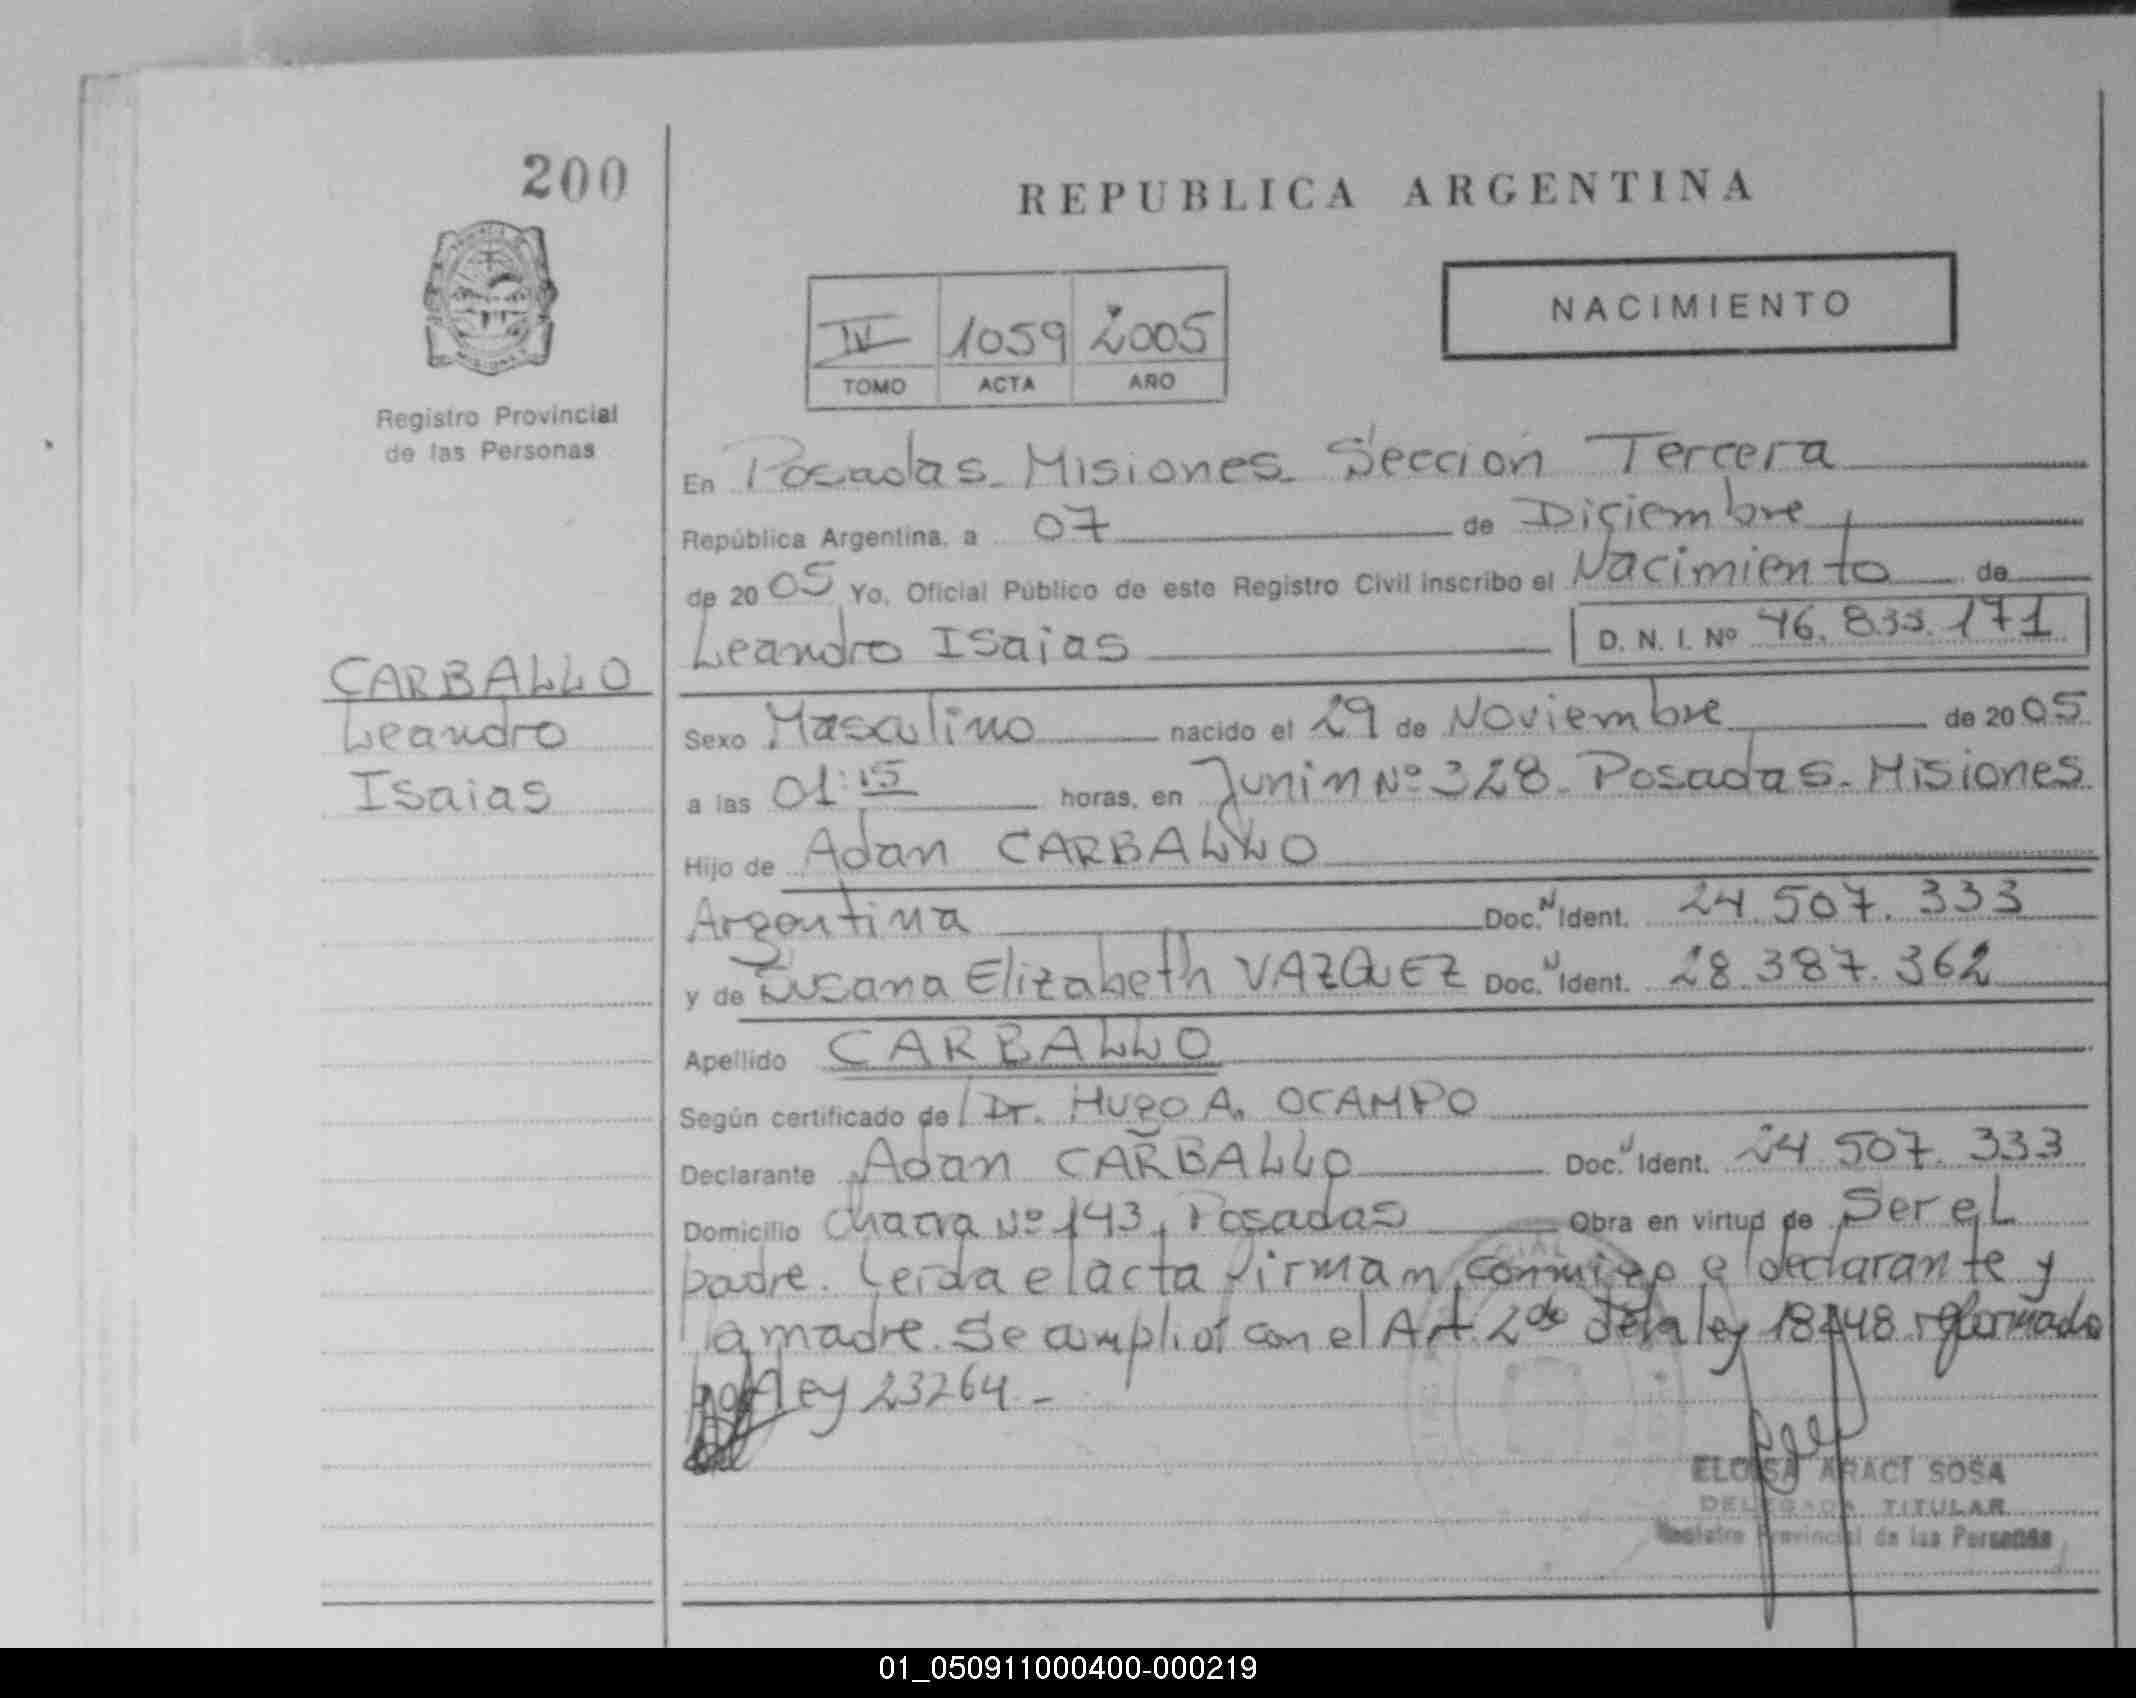 200
REPUBLICA ARGENTINA
NACIMIENTO
IV 1059 2005
TOMO ACTA AÑO
Registro Provincial
de las Personas
En Posadas - Misiones - Sección Tercera
República Argentina, a 07 de Diciembre
de 2005 Yo, Oficial Público de este Registro Civil inscribo el Nacimiento de
Leandro Isaias D. N. I. Nº 46.833.171
CARBALLO
Leandro
Isaias
Sexo Masculino nacido el 29 de Noviembre de 2005
a las 01:15 horas, en Junin Nº 328 - Posadas - Misiones
Hijo de Adan CARBALLO
Argentina Doc. N Ident. 24.507.333
y de Susana Elizabeth VAZQUEZ Doc. N Ident. 28.387.362
Apellido CARBALLO
Según certificado de Dr. Hugo A. OCAMPO
Declarante Adan CARBALLO Doc. Ident. 24.507.333
Domicilio Chacra Nº 143, Posadas Obra en virtud de Ser el
padre. Leida el acta firman conmigo el declarante y
la madre. Se amplió con el Art. 2do de la ley 18248 reformado
por ley 23264 -
ELOISA ARACI SOSA
DELEGADA TITULAR
Registro Provincial de las Personas
01_050911000400-000219